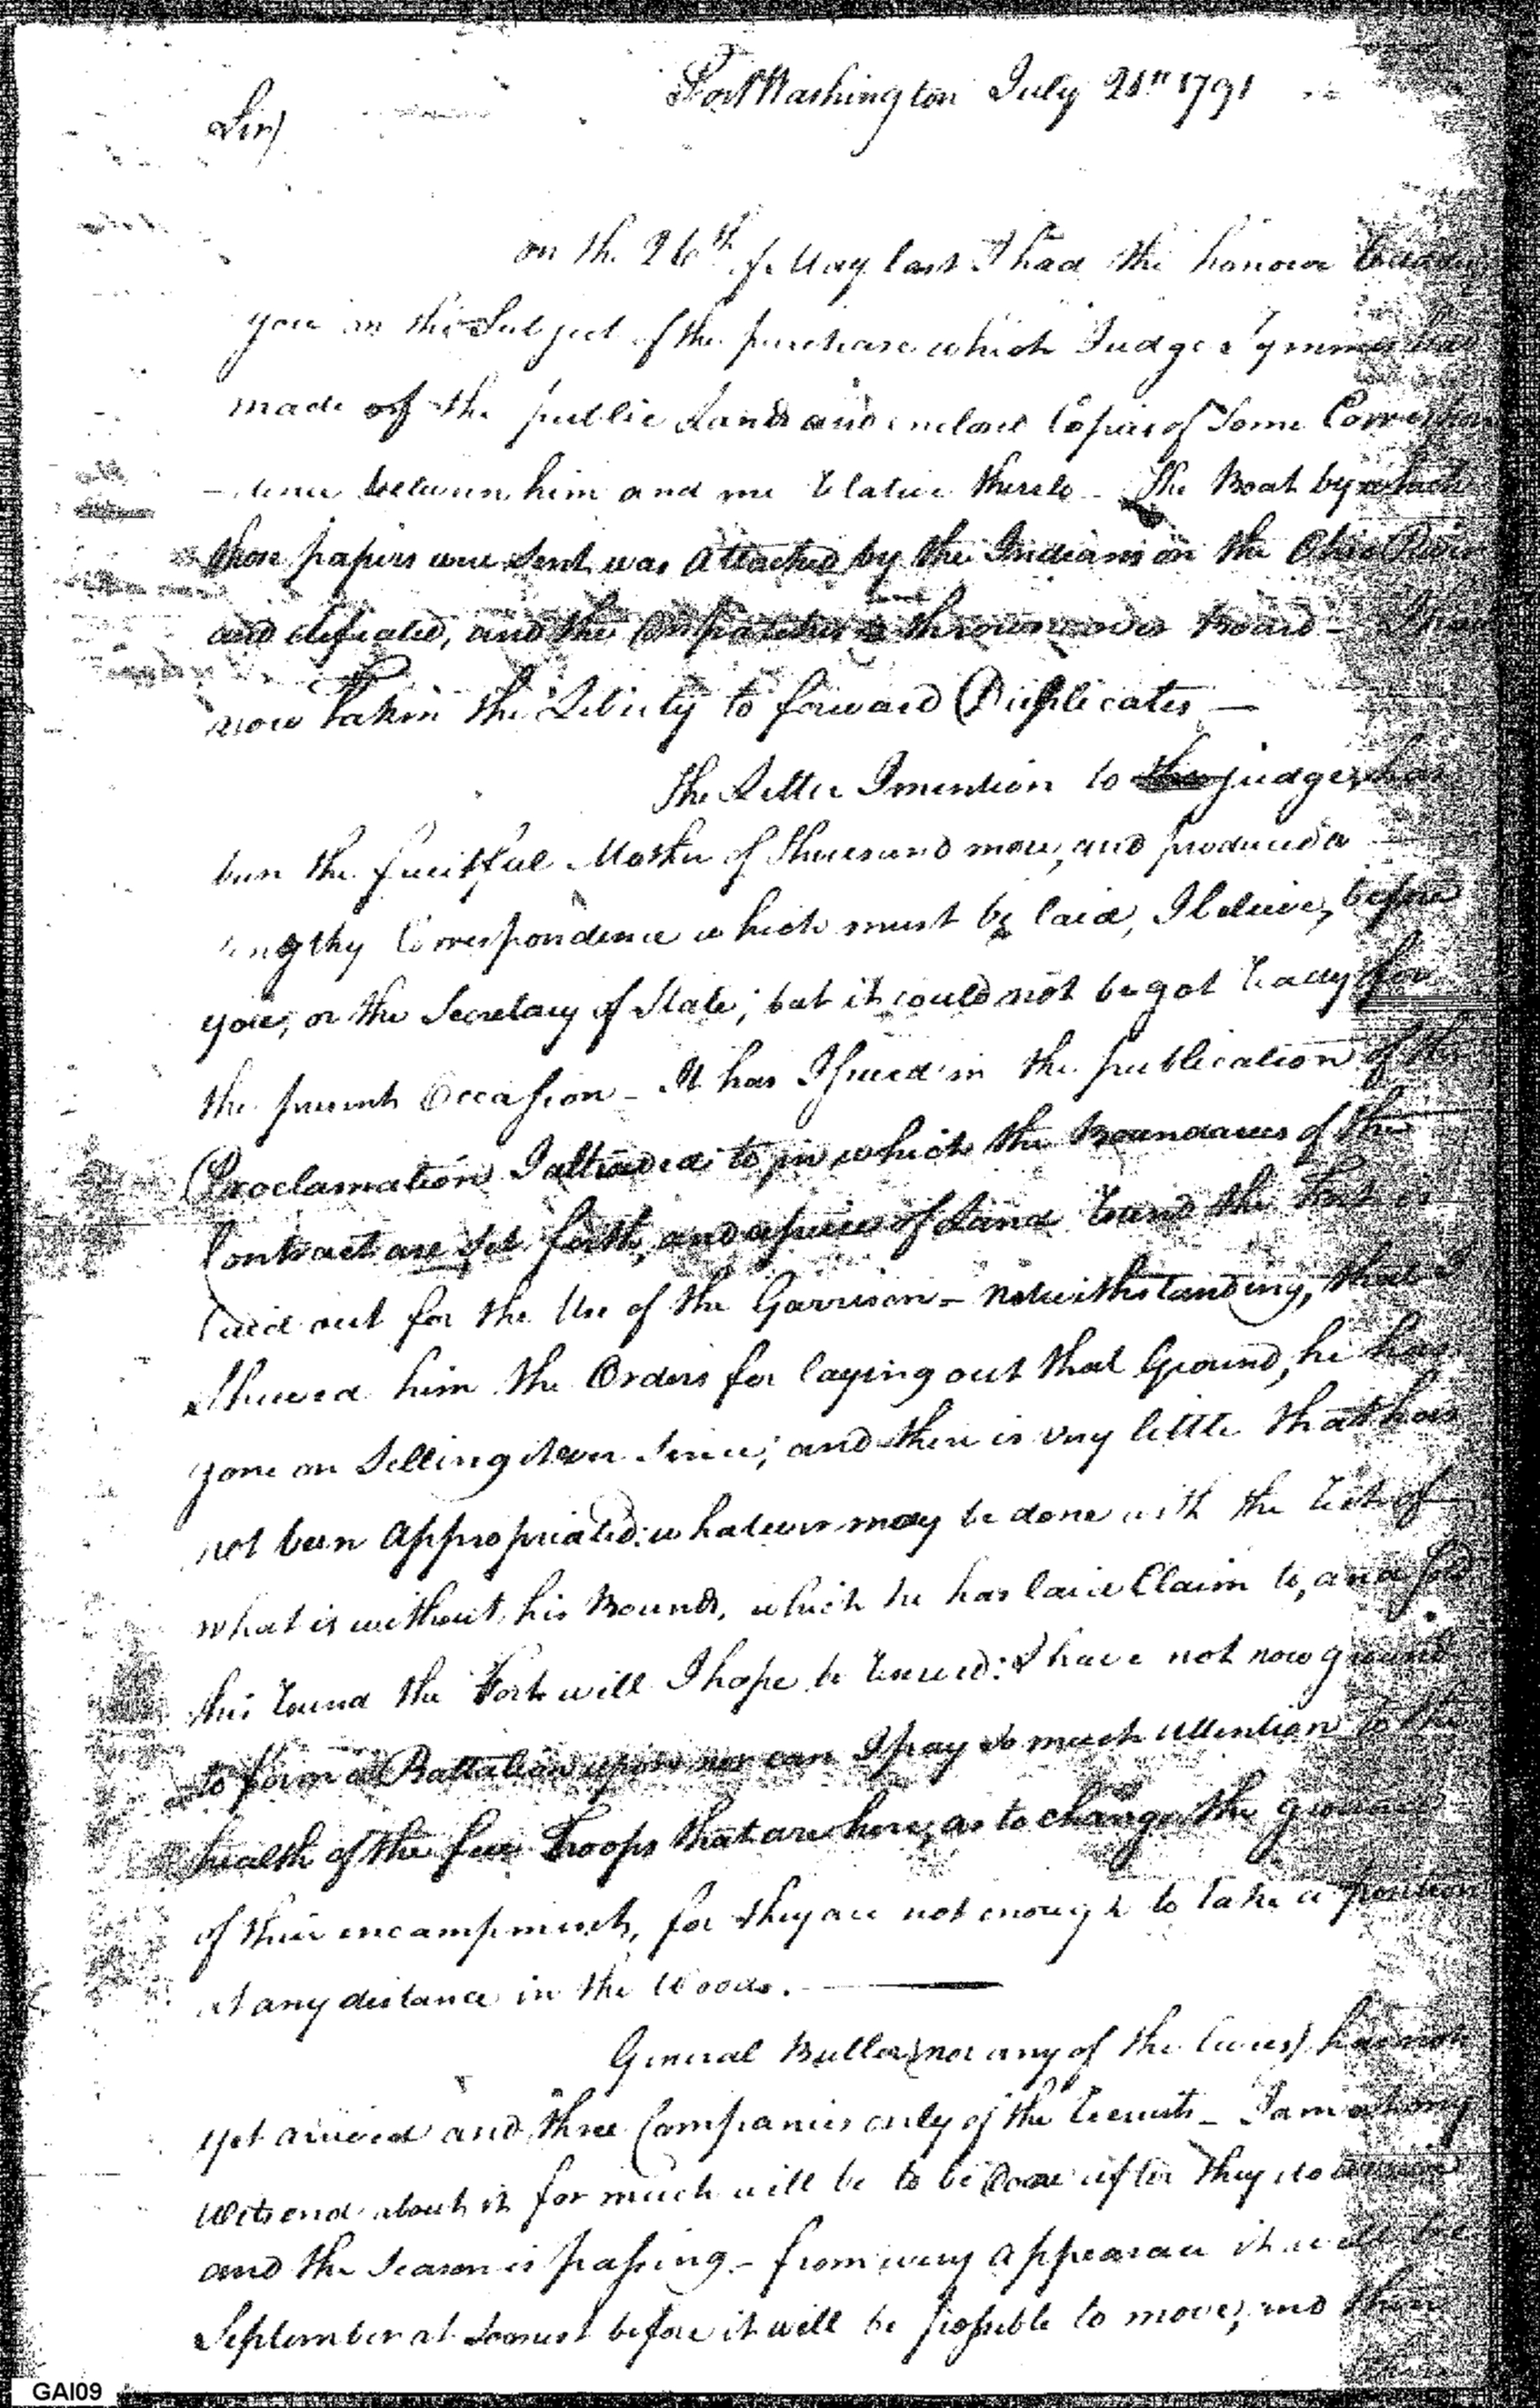 Fort Washington July 21st 1791
Sir,
on the 26th of May last I had the honour
you on the Subject of the purchase which Judge Symmes had
made of the public Lands and enclosed Copies of Some Correspon
-dence between him and me relative thereto - The Boat by which
those papers were Sent was attacked by the Indians on the Ohio River
and defeated, and the Dispatches thrown over board - I have
now taken the Liberty to forward Duplicates —
The Letter I mention to the judge, has
been the fruitful Mother of Thousand more, and produced a
lengthy Correspondence which must be laid, I beleive, before
you, or the Secretary of State; but it could not be got ready for
the present Occasion - It has Issued in the publication of the
Proclamation I alluded to, in which the Boundaries of the
Contract are Set forth, and a piece of Land round the Fort is
laid out for the Use of the Garrison - notwithstanding, that I
Shewed him the Orders for laying out that Ground, he has
gone on Selling it ever Since; and there is very little that has
not been appropriated: whatever may be done with the rest of
what is without his Bounds, which he has laid Claim to, and sold
this round the Fort will I hope be : I have not now ground
to form a Battalion upon nor can I pay So much attention to the
health of the few Troops that are here, as to change the ground
of their encampment, for they are not enough to take a position
at any distance in the Woods. —
General Butler (nor any of the Levies) has not
yet arrived and three Companies only of the recruits - I am at my
wits end about it for much will be to be Done after they do arrive
and the Season is passing - from every appearance it will be
September at Soonest before it will be possible to move, and then
GAI09